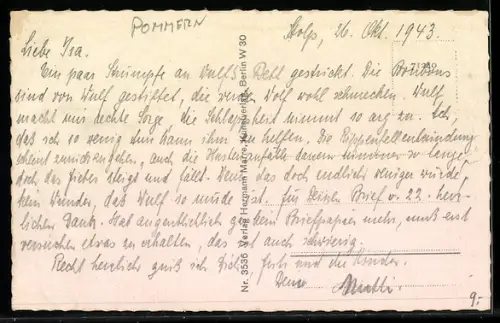 POMMERN
Stolp, 26. Okt. 1943.
Liebe Isa.
Ein paar Strümpfe an Wulfs Bett gestrickt. Die Bonbons
sind von Wulf gestiftet, die werden Wolf wohl schmecken. Wulf
macht mir rechte Sorge. Die Schlappheit nimmt so arg zu. Ach,
daß ich so wenig tun kann ihm zu helfen. Die Rippenfellentzündung
scheint zurückzugehen, auch die Hustenanfälle dauern immer so lange,
doch das Fieber steigt und fällt. Wenn das doch endlich weniger würde,
kein Wunder, daß Wulf so müde ist. Für Deinen Brief v. 22. herz-
lichen Dank. Hab augenblicklich gar kein Briefpapier mehr, muß erst
versuchen etwas zu erhalten, das ist auch schwierig.
Recht herzlich grüß ich Dich, und die Kinder.
Deine Mutti.
9.-
Nr. 3536 Verlag Hermann Berlin W 30